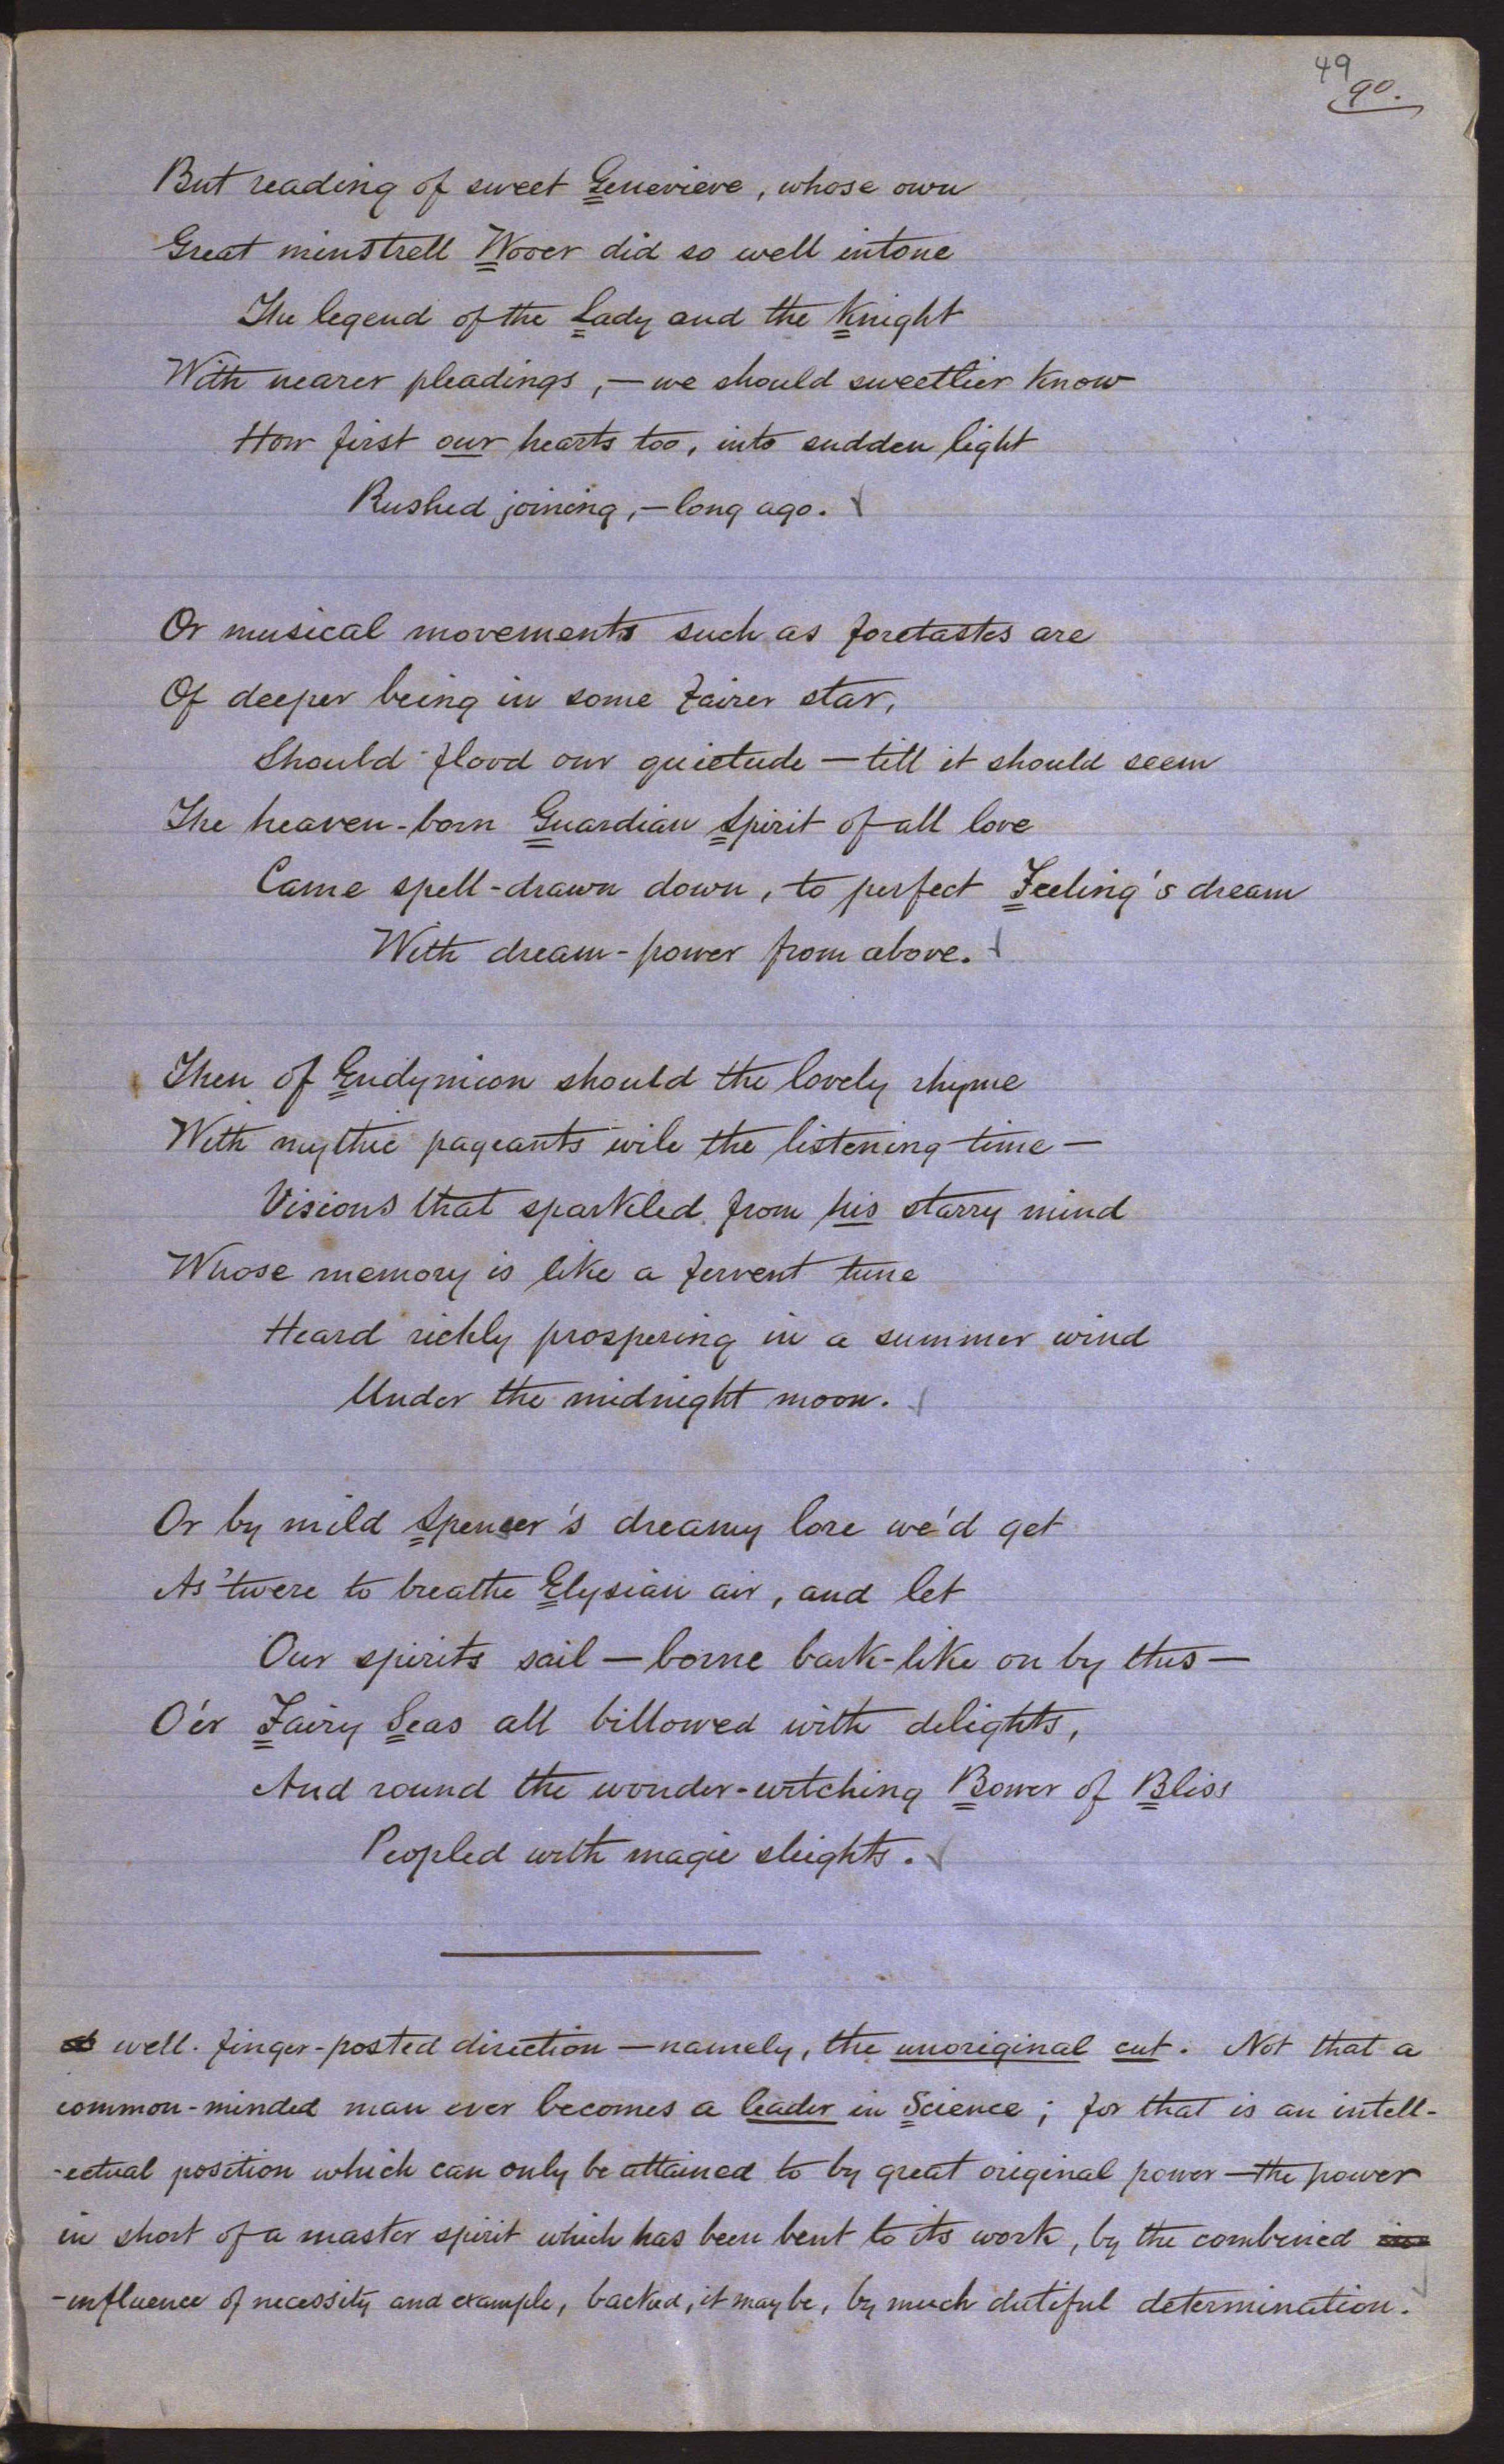 49
90.
But reading of sweet Genevieve, whose own
Great minstrell Wooer did so well intone
The legend of the Lady and the Knight
With nearer pleadings, — we should sweetlier know
How first our hearts too, into sudden light
Rushed joining, — long ago.
Or musical movements such as foretastes are
Of deeper being in some fairer star,
Should flood our quietude — till it should seem
The heaven-born Guardian Spirit of all love
Came spell-drawn down, to perfect Feeling's dream
With dream-power from above.
Then of Endymion should the lovely rhyme
With mythic pageants wile the listening time —
Visions that sparkled from his starry mind
Whose memory is like a fervent tune
Heard richly prospering in a summer wind
Under the midnight moon.
Or by mild Spencer's dreamy lore we'd get
As 'twere to breathe Elysian air, and let
Our spirits sail — borne bark-like on by this —
O'er Fairy Seas all billowed with delights,
And round the wonder-witching Bower of Bliss
Peopled with magic sleights.
well-finger-posted direction — namely, the unoriginal cut. Not that a
common-minded man ever becomes a leader in Science; for that is an intell-
-ectual position which can only be attained to by great original power — the power
in short of a master spirit which has been bent to its work, by the combined
-influence of necessity and example, backed, it may be, by much dutiful determination.